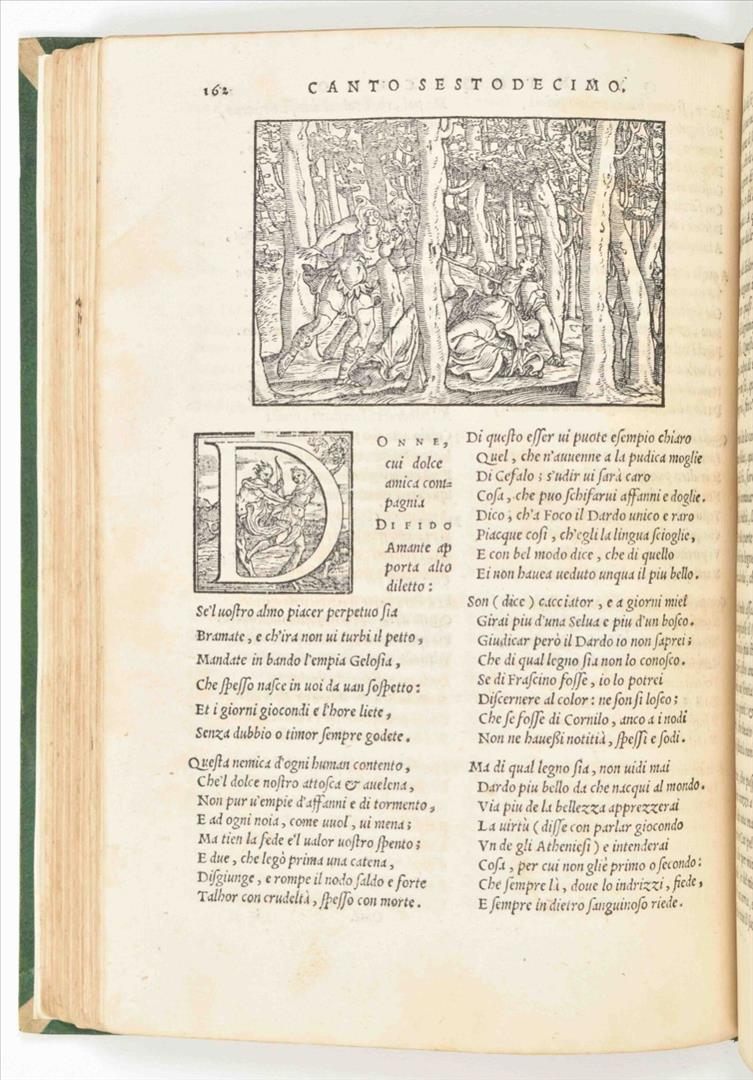 162
CANTO SESTODECIMO.
DONNE,
cui dolce
amica com=
pagnia
DI FIDO
Amante ap
porta alto
diletto:
Se'l uostro almo piacer perpetuo sia
Bramate, e ch'ira non ui turbi il petto,
Mandate in bando l'empia Gelosia,
Che spesso nasce in uoi da uan sospetto:
Et i giorni giocondi e l'hore liete,
Senza dubbio o timor sempre godete.
Questa nemica d'ogni human contento,
Che'l dolce nostro attosca & auelena,
Non pur u'empie d'affanni e di tormento,
E ad ogni noia, come uuol, ui mena;
Ma tien la fede e'l ualor uostro spento;
E due, che legò prima una catena,
Disgiunge, e rompe il nodo saldo e forte
Talhor con crudeltà, spesso con morte.
Di questo esser ui puote esempio chiaro
Quel, che n'auuenne a la pudica moglie
Di Cefalo; s'udir ui sarà caro
Cosa, che puo schifarui affanni e doglie.
Dico, ch'a Foco il Dardo unico e raro
Piacque così, ch'egli la lingua scioglie,
E con bel modo dice, che di quello
Ei non hauea ueduto unqua il piu bello.
Son (dice) cacciator, e a giorni miei
Girai piu d'una Selua e piu d'un bosco.
Giudicar però il Dardo io non saprei;
Che di qual legno sia non lo conosco.
Se di Frascino fosse, io lo potrei
Discernere al color: ne son sì losco;
Che se fosse di Cornilo, anco a i nodi
Non ne hauessi notitià, spessi e sodi.
Ma di qual legno sia, non uidi mai
Dardo piu bello da che nacqui al mondo.
Via piu de la bellezza apprezzerai
La uirtù (disse con parlar giocondo
Vn de gli Atheniesi) e intenderai
Cosa, per cui non gliè primo o secondo:
Che sempre là, doue lo indrizzi, fiede,
E sempre in dietro sanguinoso riede.